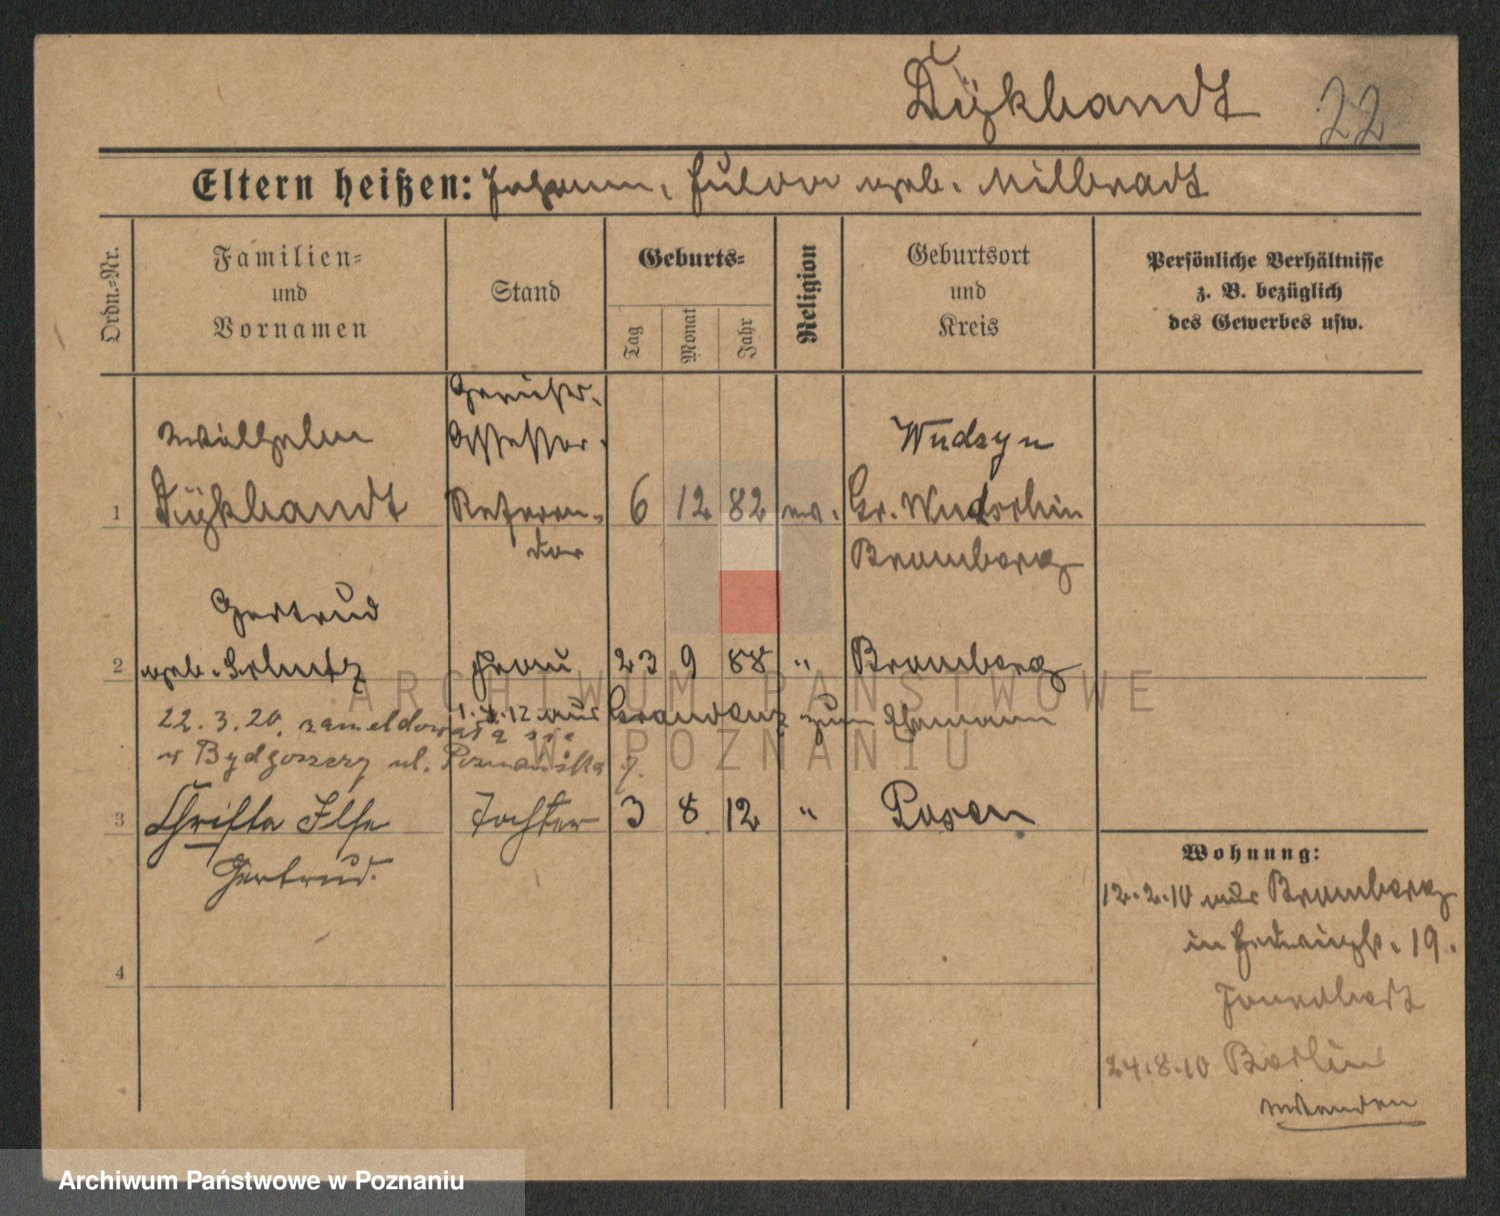 22
Eltern heißen: Johann, geb. Milbradt
Ordn.-Nr.
Familien-
und
Vornamen
Stand
Geburts-
Tag
Monat
Jahr
Religion
Geburtsort
und
Kreis
Persönliche Verhältnisse
z. B. bezüglich
des Gewerbes usw.
Gerichts-
Wilhelm Assessor. Wudzyn
1 Referen- 6 12 82 ev. Gr. Wudschin
dar Bromberg
Gertrud
2 geb. Frau 23 9 88 " Bromberg
1.4.12 aus Graudenz zum Ehemann
22.3.20. zameldowała się
w Bydgoszczy ul. Poznańska 7.
3 Christa Ilse Tochter 3 8 12 " Posen
Gertrud.
Wohnung:
12.2.10 aus Bromberg
in Hedwigstr. 19.
4
24.8.10 Berlin
ARCHIWUM PAŃSTWOWE
W POZNANIU
Archiwum Państwowe w Poznaniu